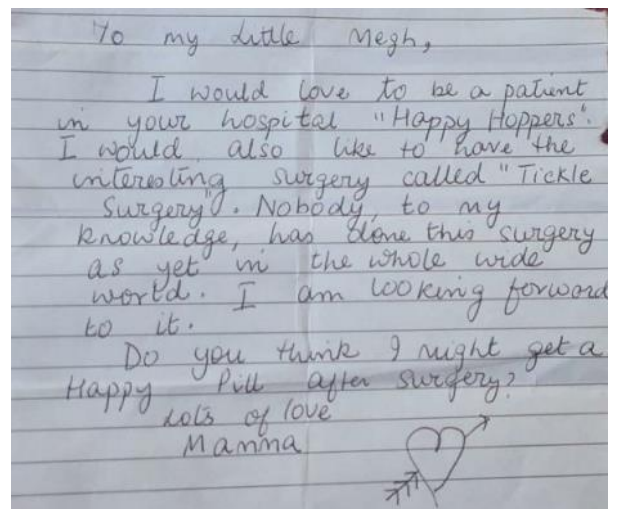 To my Little Megh,
I would love to be a patient
in your hospital "Happy Hoppers".
I would also like to have the
interesting surgery called "Tickle
Surgery". Nobody, to my
knowledge, has done this surgery
as yet in the whole wide
world. I am looking forward
to it.
Do you think I might get a
Happy Pill after surgery?
Lots of love
Mamma